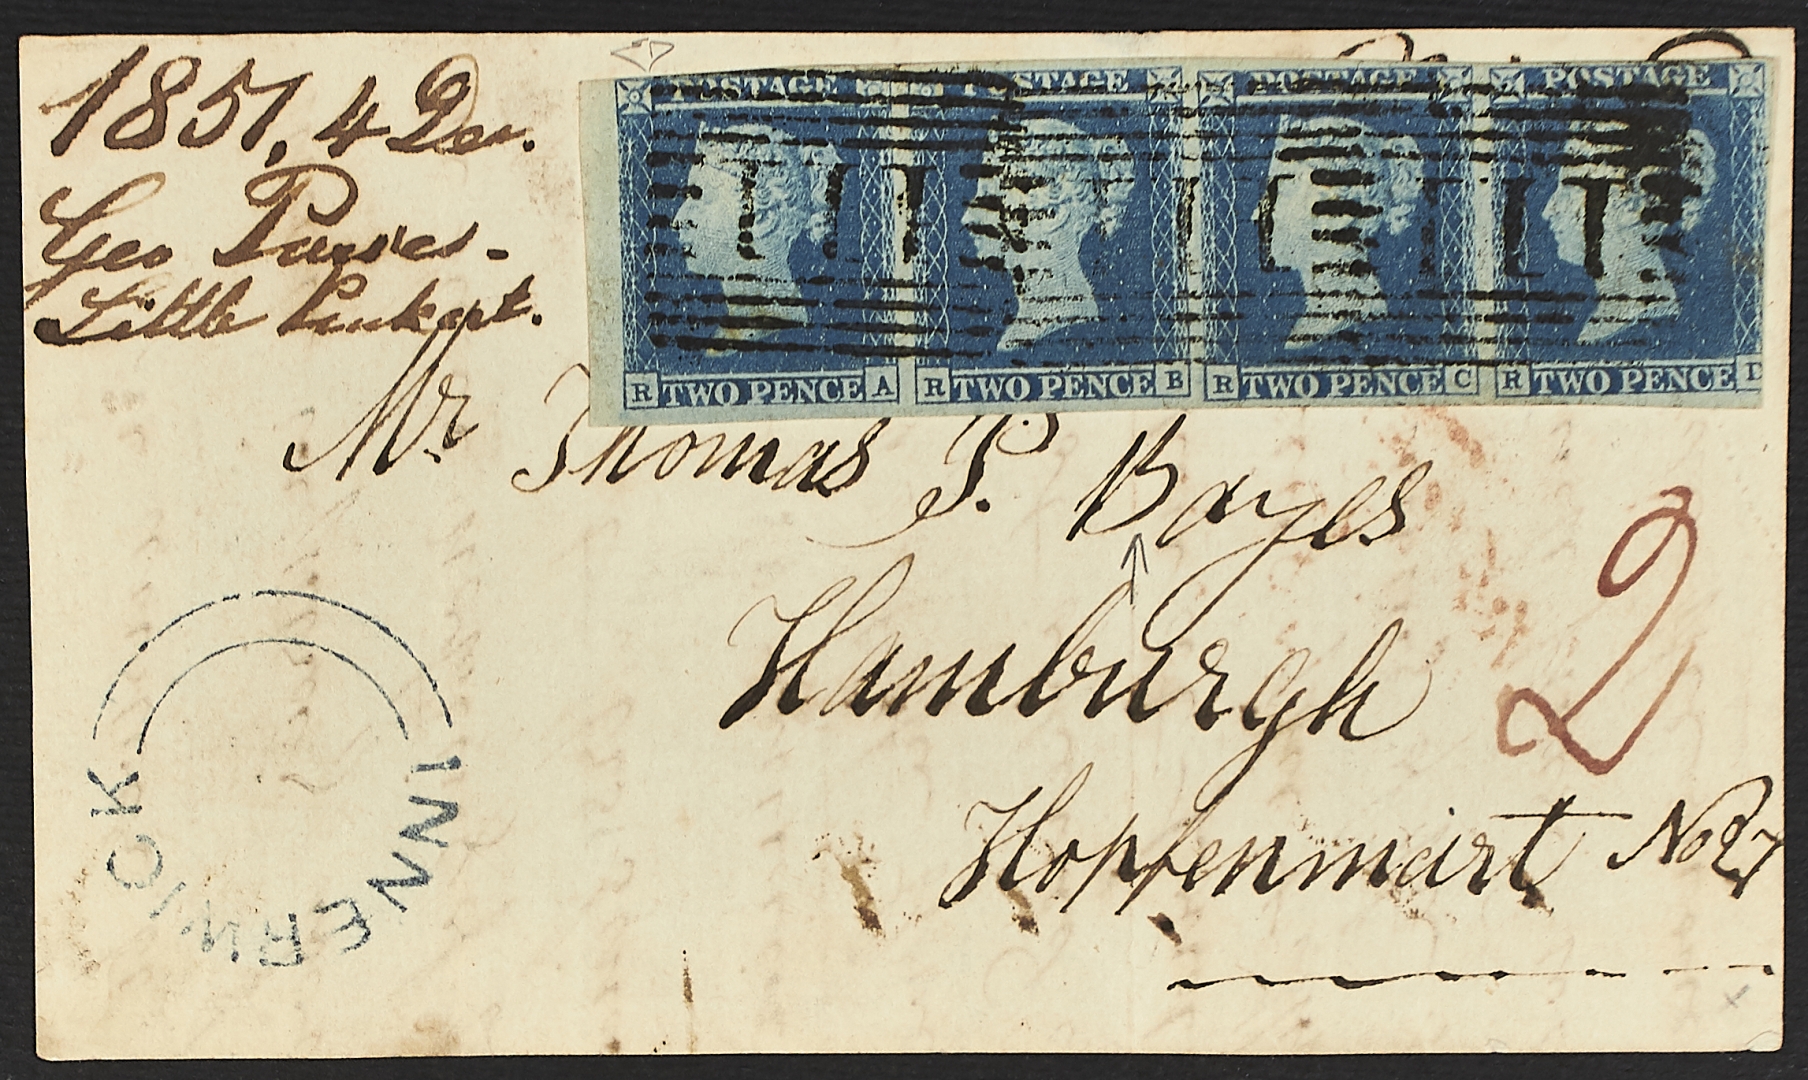 1851. 4 Dec.
Geo Purves.
Little Pinkert.
POSTAGE POSTAGE POSTAGE POSTAGE
R TWO PENCE A R TWO PENCE B R TWO PENCE C R TWO PENCE D
Mr Thomas P. Bayes
Hamburgh
2
Hopfenmart No 27
INNERWICK